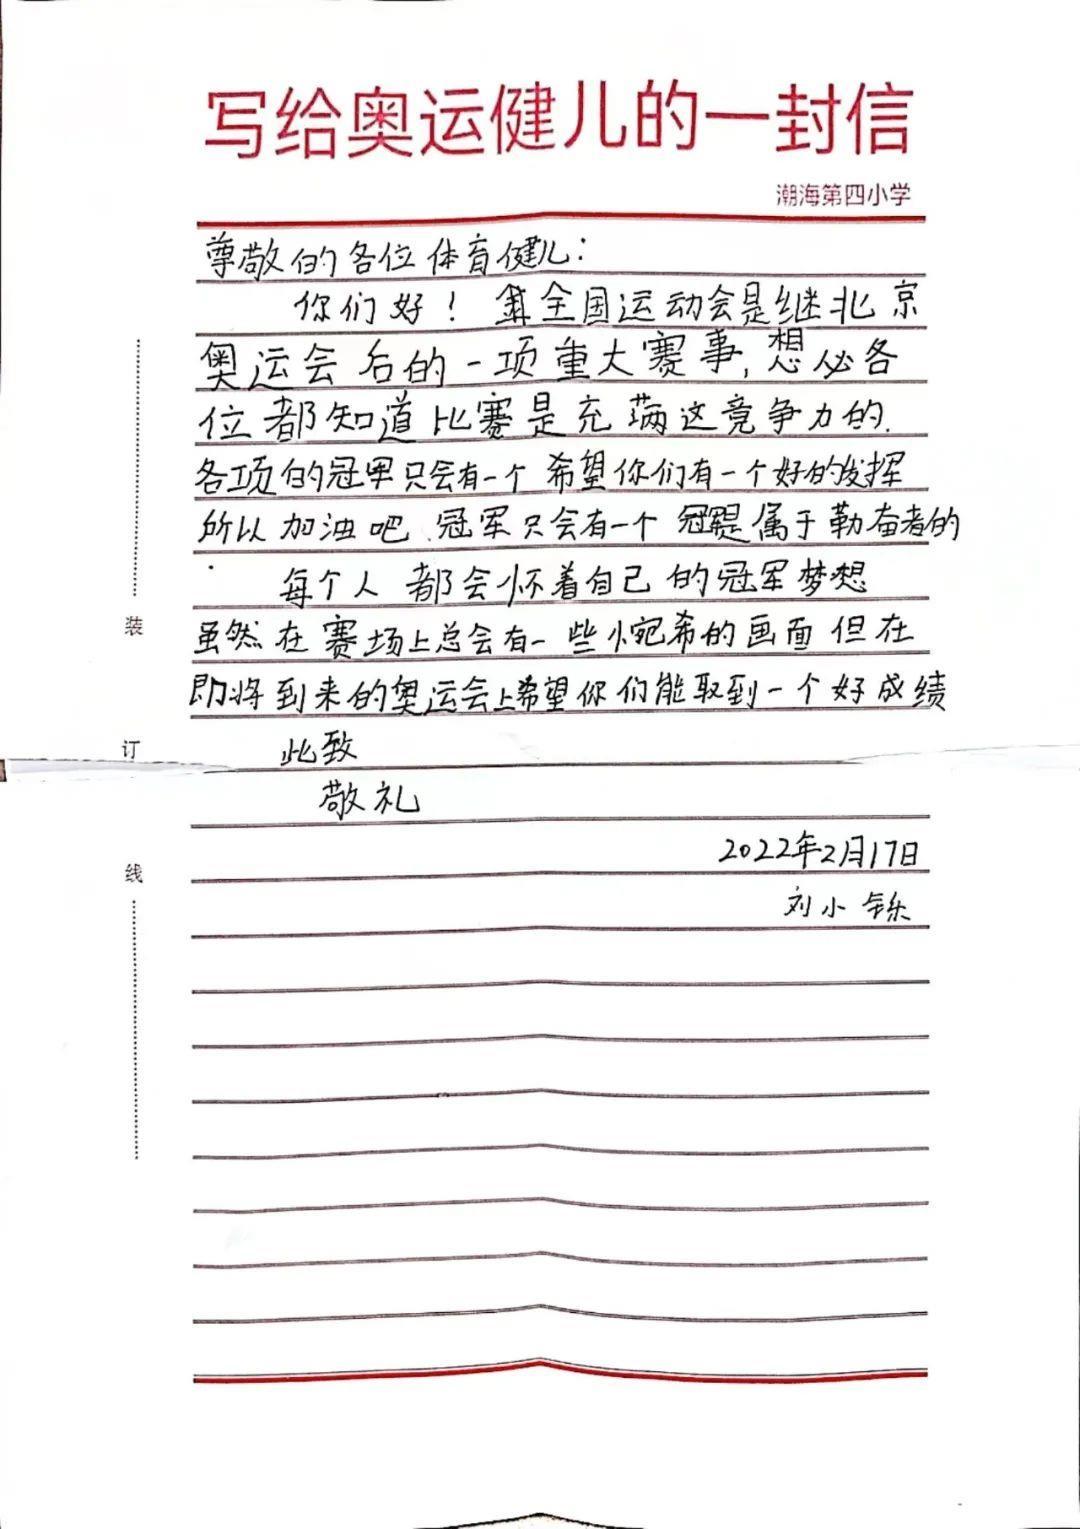 写给奥运健儿的一封信
潮海第四小学
尊敬的各位体育健儿：
你们好！全国运动会是继北京
奥运会后的一项重大赛事,想必各
位都知道比赛是充满这竞争力的.
各项的冠军只会有一个 希望你们有一个好的发挥
所以加油吧、冠军只会有一个 属于勤奋者的
每个人 都会怀着自己的冠军梦想
虽然在赛场上总会有一些惋希的画面但在
即将到来的奥运会上希望你们能取到一个好成绩
此致
敬礼
2022年2月17日
刘小铄
装
订
线